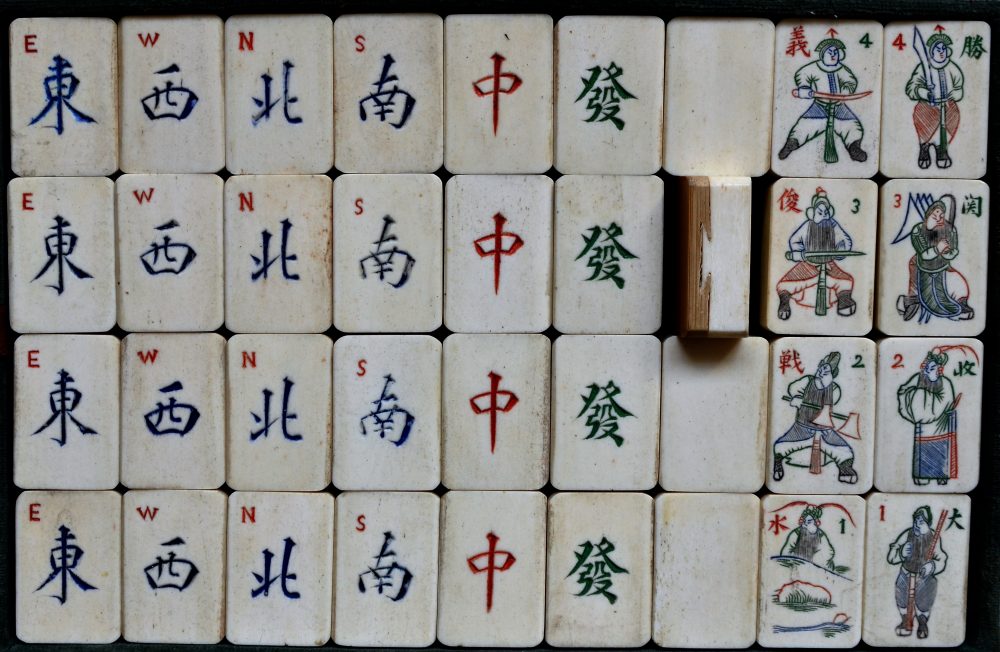 E 東 W 西 N 北 S 南 中 發 義 4 4 勝
E 東 W 西 N 北 S 南 中 發 俊 3 3 関
E 東 W 西 N 北 S 南 中 發 戦 2 2 收
E 東 W 西 N 北 S 南 中 發 水 1 1 大